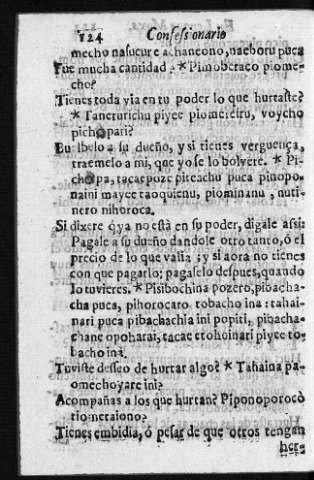 124 Confessionario
mecho nasucure achaneono, naeboru puca
Fue mucha cantidad? * Pimoberaco piome-
cho?
Tienes toda via en tu poder lo que hurtaste?
* Tanerurichu piyee piomereiru, voycho
pichopari?
Buelbelo a su dueño, y si tienes verguença,
traemelo a mi, que yo se lo bolvere. * Pi-
chopa, tacaepoze piteachu puca pinopo-
naini mayee taoquienu, piominanu, nuti-
nero nihoroca.
Si dixere q̃ ya no està en su poder, digale assi:
Pagale a su dueño dandole otro tanto, ó el
precio de lo que valia; y si aora no tienes
con que pagarlo; pagaselo despues, quando
lo tuvieres. * Pisibochina pozero, pibacha-
cha puca, pihorocaro tobacho ina: tahai-
nari puca pibachachia ini popiti, pibacha-
chane opoharai, tacae etohoinari piyee to-
bacho ina.
Tuviste desseo de hurtar algo? * Tahaina pa-
omechoyare ini?
Acompañas a los que hurtan? Piponoporocò
tiomeraiono?
Tienes embidia, ó pesar de que otros tengan
her-